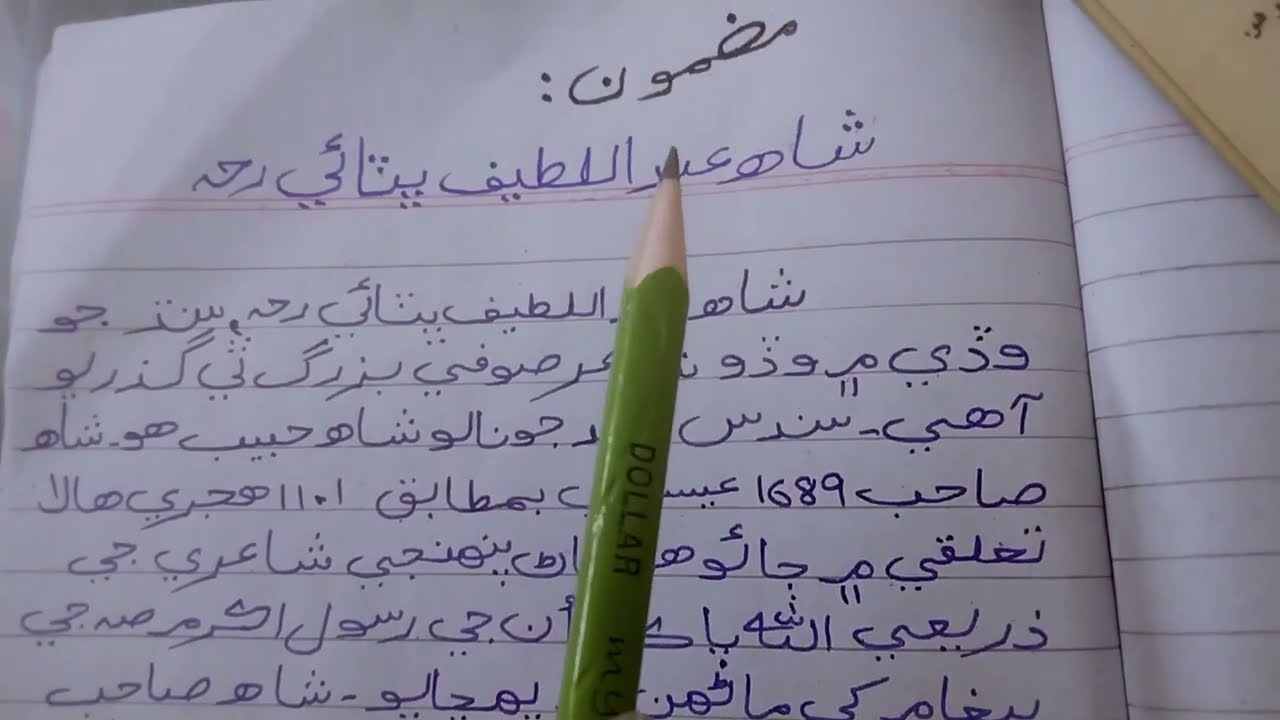 مضمون:
شاھ عبداللطيف ڀٽائي رحہ
شاھ اللطيف ڀٽائي رحہ، سنڌ جو
وڏي ۾ وڏو صوفي بزرگ ٿي گذريو
آهي۔ سندس جو نالو شاھ حبيب هو۔ شاھ
صاحب 1689 بمطابق 1101 هجري هالا
تعلقي ۾ ڄائو پنهنجي شاعري جي
ذريعي الله پاڪ جي رسول اڪرم صہ جي
پيغام کي ماڻهن پهچايو۔ شاھ صاحب
DOLLAR my
3.